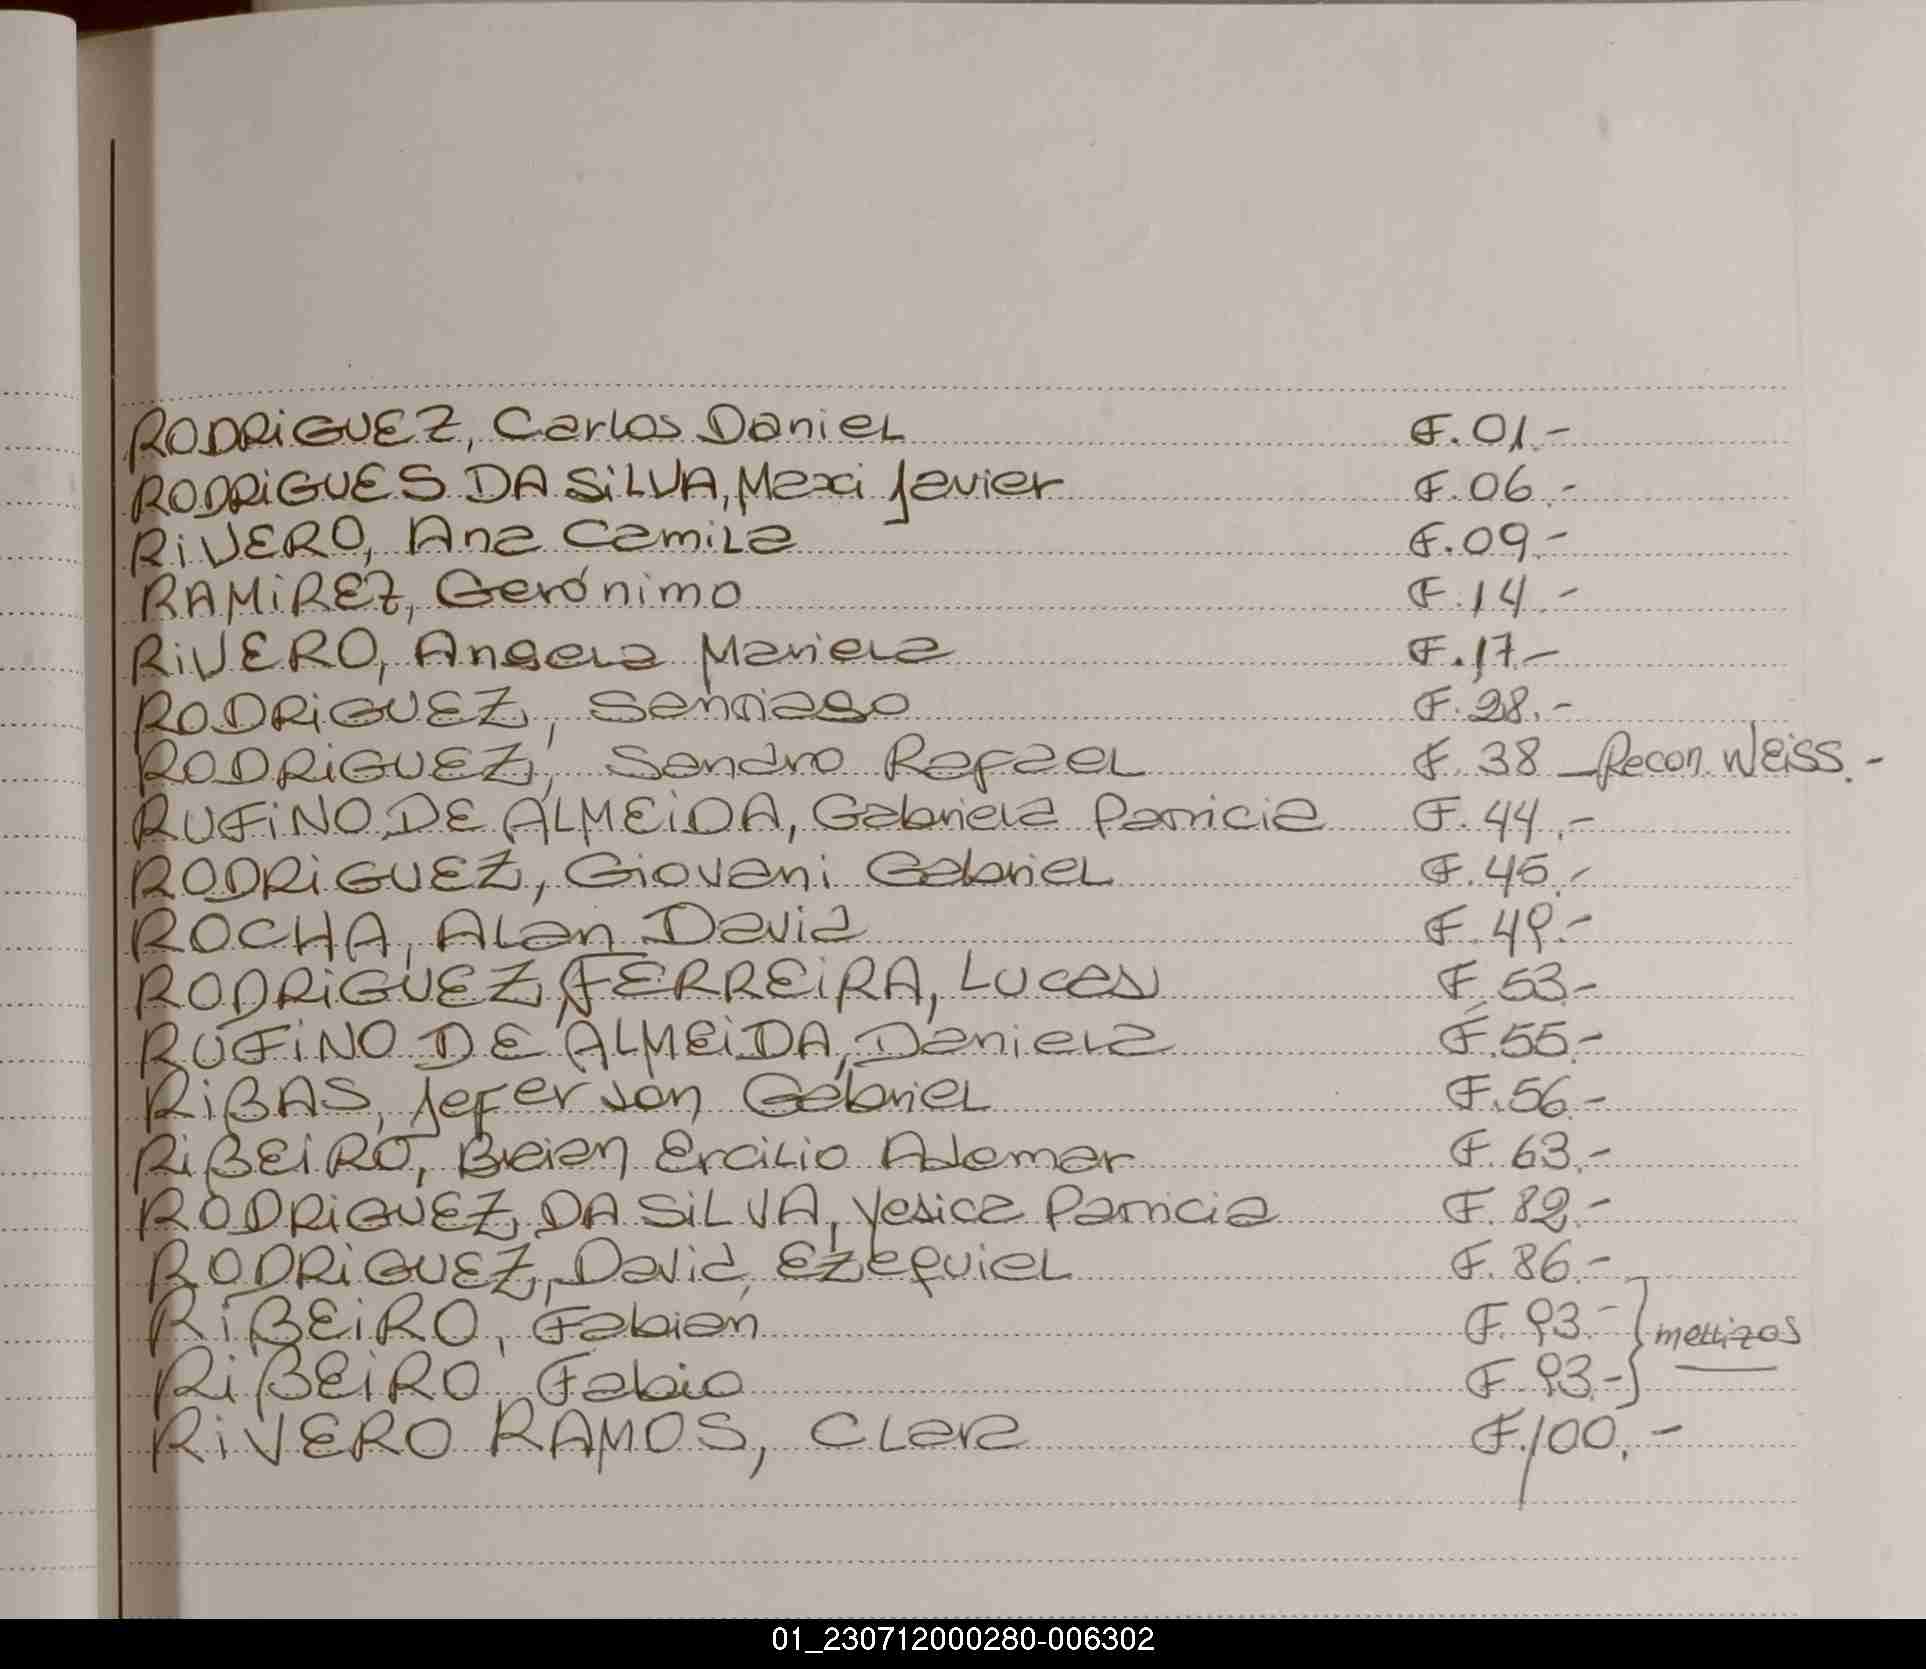 RODRIGUEZ, Carlos Daniel F.01.-
RODRIGUES DA SILVA, Maxi Javier F.06.-
RIVERO, Ana Camila F.09.-
RAMIREZ, Gerónimo F.14.-
RIVERO, Angela Mariela F.17.-
RODRIGUEZ, Santiago F.28.-
RODRIGUEZ, Sandro Rafael F.38 - Recon. Weiss.-
RUFINO DE ALMEIDA, Gabriela Patricia F.44.-
RODRIGUEZ, Giovani Gabriel F.45.-
ROCHA, Alan David F.49.-
RODRIGUEZ FERREIRA, Lucas F.53.-
RUFINO DE ALMEIDA, Daniela F.55.-
RIBAS, Jeferson Gabriel F.56.-
RIBEIRO, Breian Ercilio Ademar F.63.-
RODRIGUEZ DA SILVA, Yesica Patricia F.82.-
RODRIGUEZ, David Ezequiel F.86.-
RIBEIRO, Fabian F.93.- } mellizos
RIBEIRO, Fabio F.93.-
RIVERO RAMOS, Clara F.100.-
01_230712000280-006302